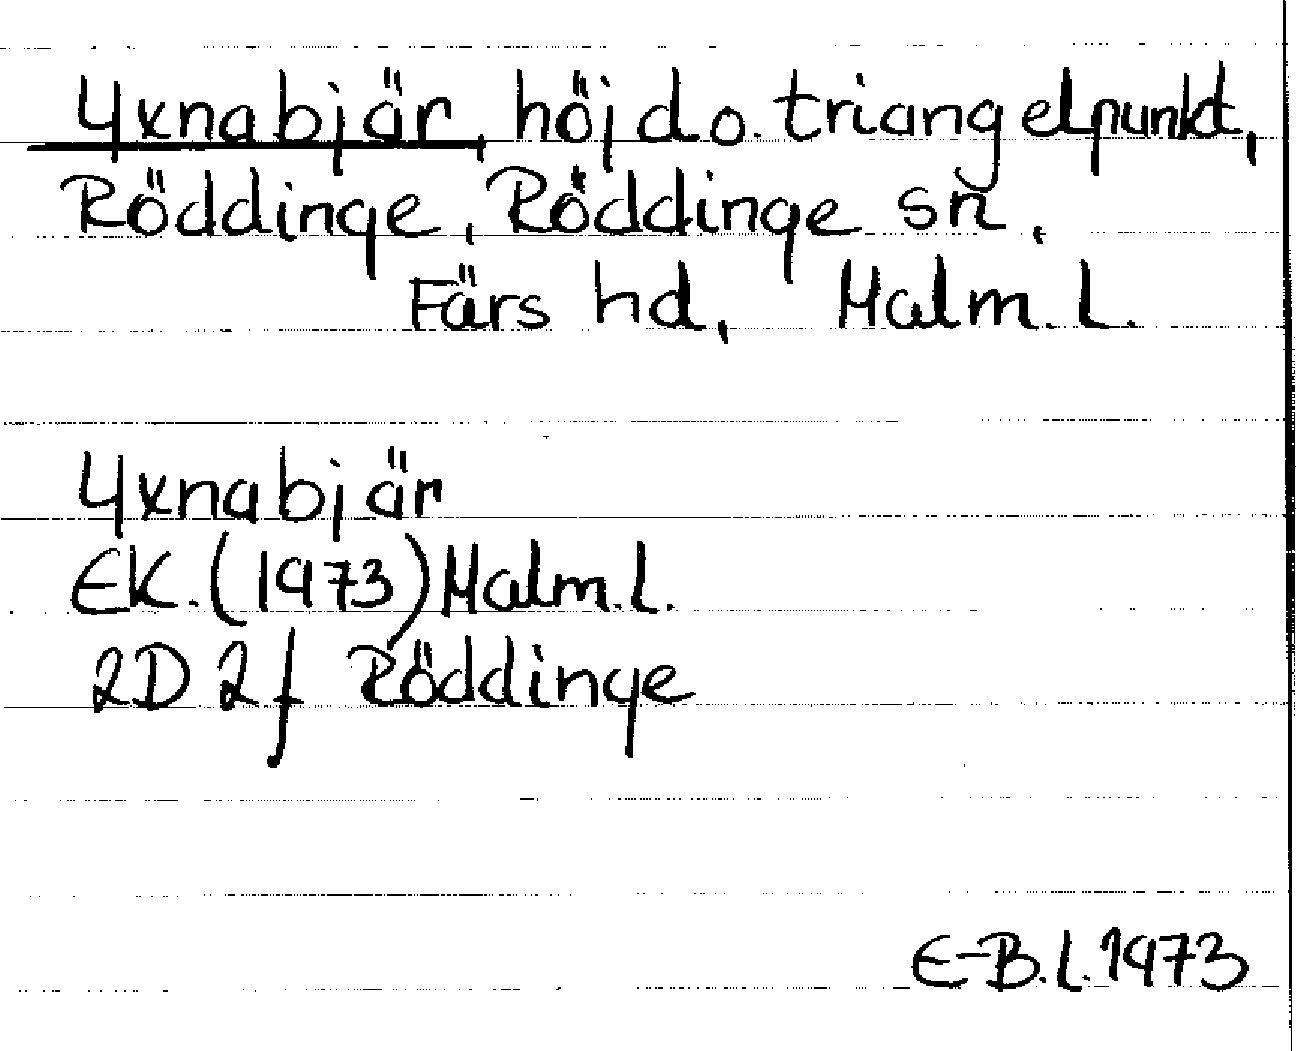 Yxnabjär, höjd o. triangelpunkt,
Röddinge, Röddinge sn,
Färs hd, Malm. L.
Yxnabjär
EK. (1973) Malm. l.
2D 2f Röddinge
E-B. L. 1973